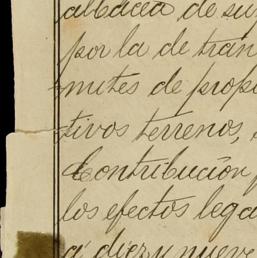 albacea de su
por la de trán
mites de propi
tivos terrenos,
Contribución
los efectos lega
á diez y nueve